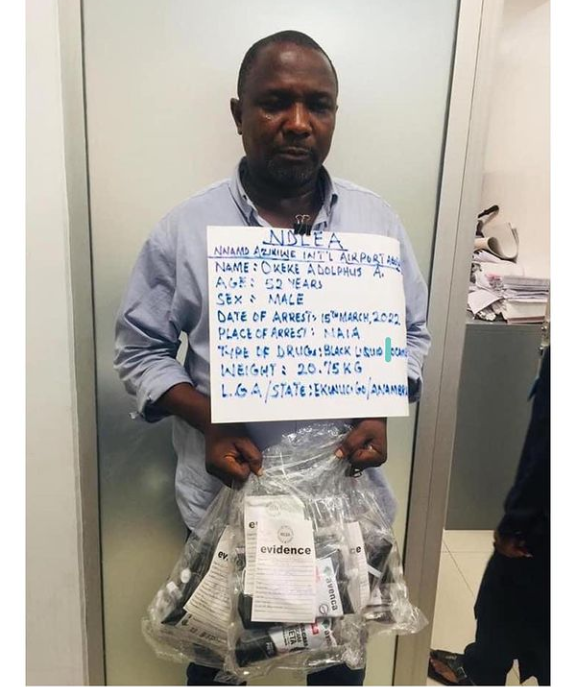 NDLEA
NNAMD AZIKIWE INT'L AIRPORT
NAME: OKEKE ADOLPHUS A.
AGE: 52 YEARS
SEX: MALE
DATE OF ARREST: 15TH MARCH, 2022
PLACE OF ARREST: NAIA
TYPE OF DRUG: BLACK LIQUID
WEIGHT: 20.75KG
L.G.A/STATE:
evidence
avenca